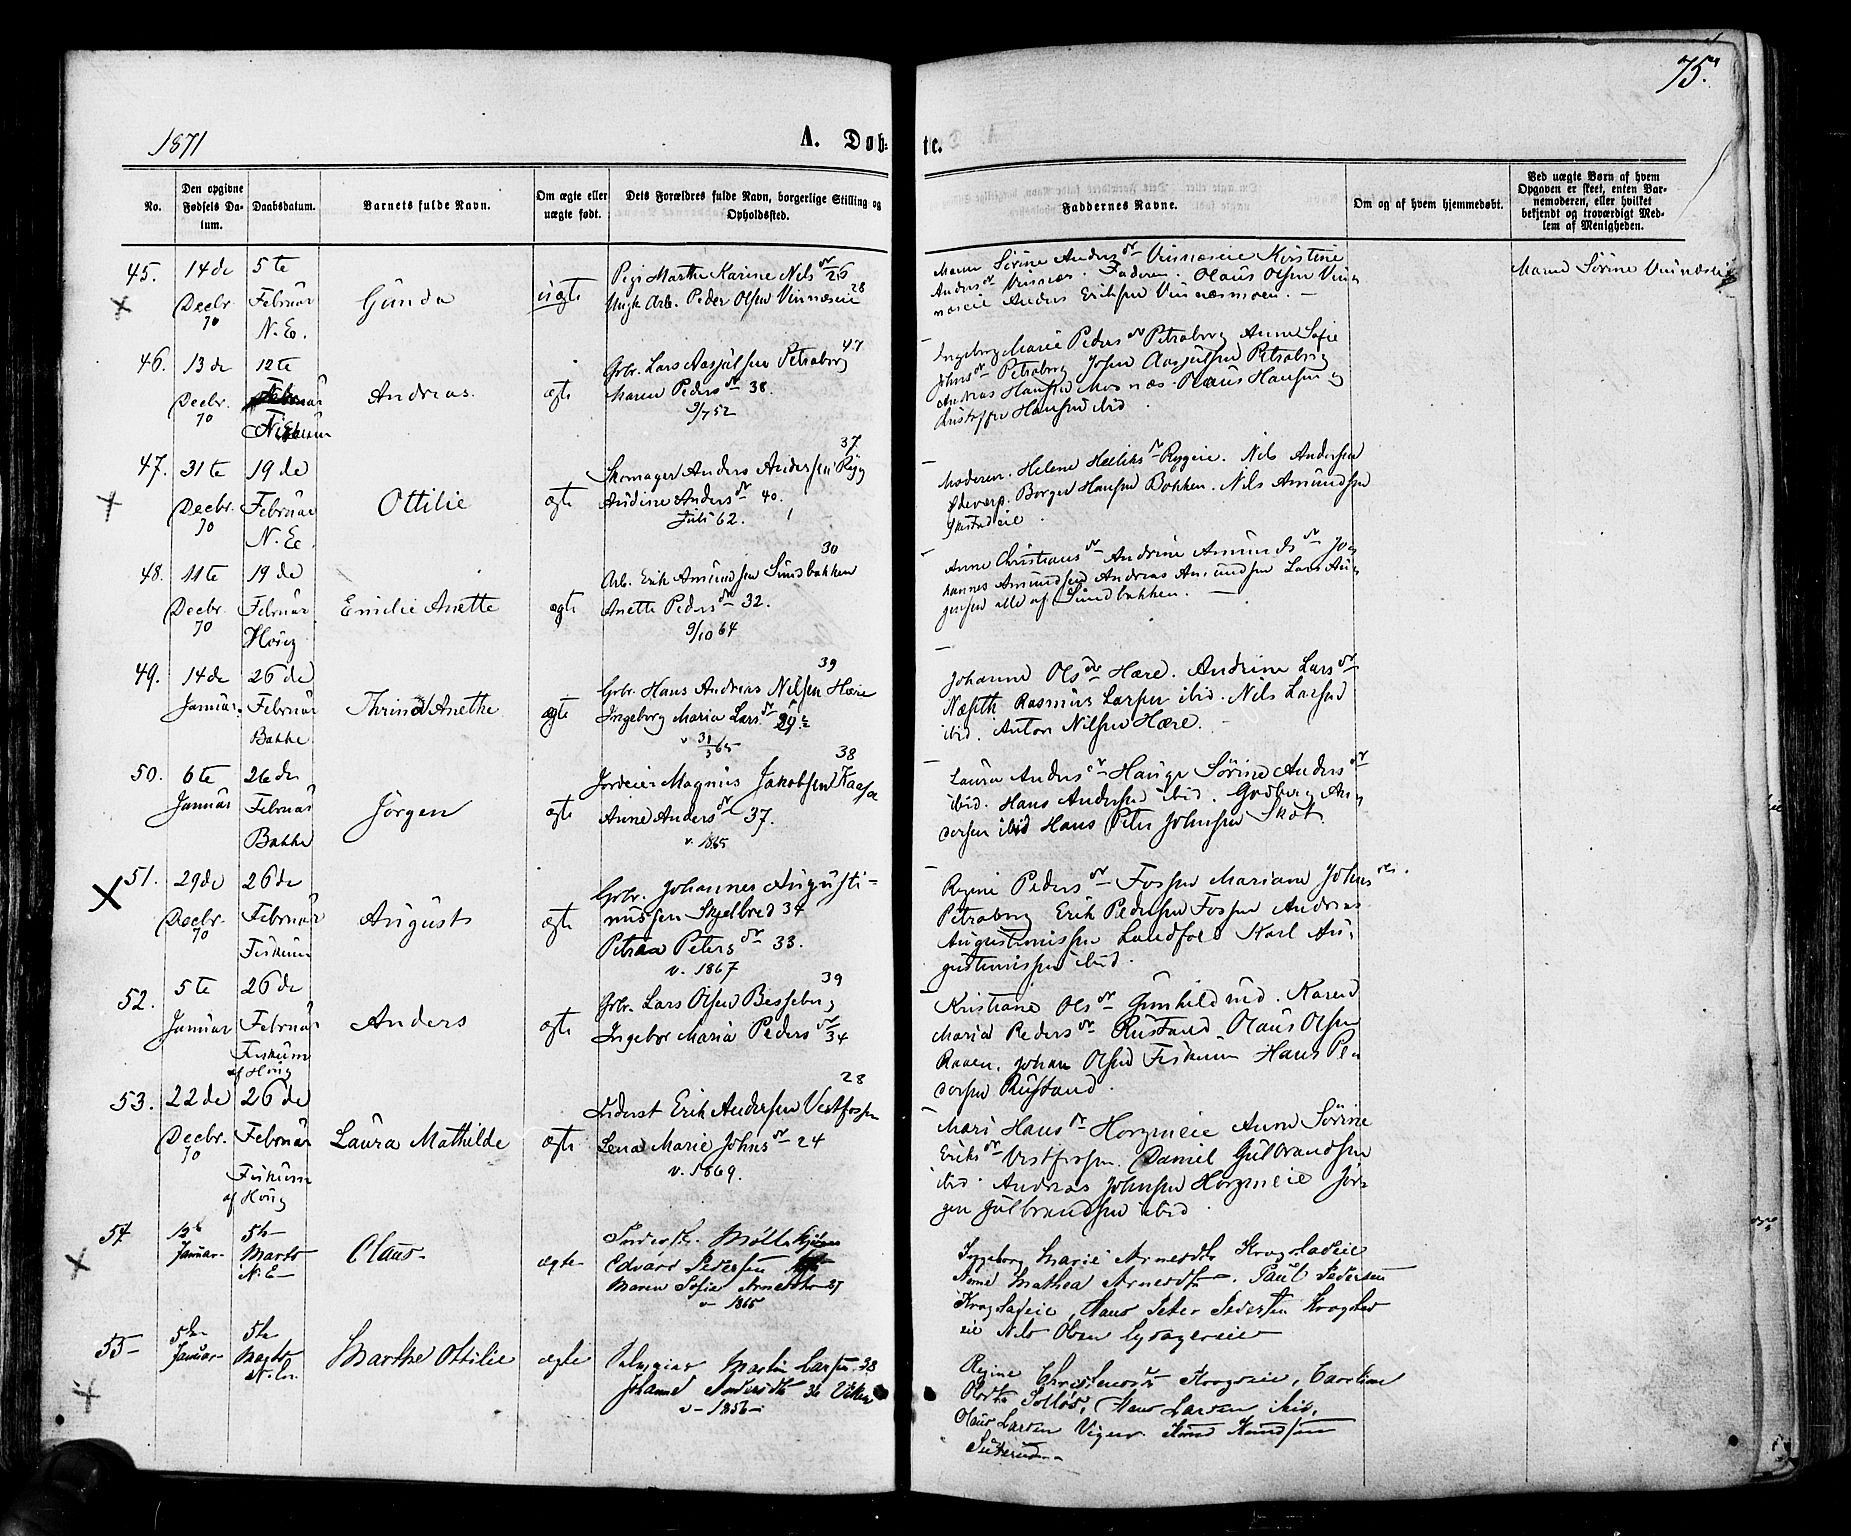 75.
1871
A. Døb-
te.
No.
Den opgivne
Fødsels Da-
tum.
Daabsdatum.
Barnets fulde Navn.
Om ægte eller
uægte født.
Dets Forældres fulde Navn, borgerlige Stilling og
Opholdssted.
Faddernes Navne.
Om og af hvem hjemmedøbt.
Ved uægte Børn af hvem
Opgaven er skeet, enten Bar-
nemoderen, eller hvilket
bekjendt og troværdigt Med-
lem af Menigheden.
45.
14de
Decbr.
70
5te
Februar
N. E.
Gunda
uægte
Pige Marthe Karine Nilsdr 26
Ungk. Arb. Peder Olsen Vinnæseie 28
Maren Sørine Andersdr Vinnæseie Kirstine
Andersdr Vinnæs. Faderen. Olaus Olsen Vin-
næseie Anders Eriksen Vinnæsmoen.
Maren Sørine Vinnæseie
46.
13de
Decbr.
70
12te
Februar
Fiskum
Andreas.
ægte
Gbr. Lars Aasulsen Petraborg 47
Maren Pedersdr 38.
9/7 52
Ingeborg Marie Pedersdr Petraborg Anne Sofie
Johnsdr Petraborg John Aasulsen Petraborg
Andreas Hansen Mosnæs. Olaus Hansen og
Kristoffer Hansen ibid.
47.
31te
Decbr.
70
19de
Februar
N. E.
Ottilie
ægte
37
Skomager Anders Andersen Ryg
Andine Andersdr 40.
Juli 62.
Moderen. Helene Helliksdr Rygeie. Nils Andersen
Borger Hansen Bakken. Nils Amundsen
48.
11te
Decbr.
70
19de
Februar
Houg
Emilie Anette
ægte
30
Arb. Erik Amundsen Sundbakken
Anette Pedersdr 32.
9/10 64
Anne Christiansdr Andrine Amundsdr Jo-
hannes Amundsen Andreas Amundsen Lars Au-
gensen alle af Sundbakken.
49.
14de
Januar.
26de
Februar
Bakke
Thrine Anethe
ægte
39
Gbr. Hans Andreas Nilsen Hære
Ingeborg Maria Larsdr 29
v 31/3 65
Johanne Olsdr Hære. Andrine Larsdr
Næseth Rasmus Larsen ibid. Nils Larsen
ibid. Anton Nilsen Hære.
50.
6te
Januar
26de
Februar
Bakke
Jørgen
ægte
38
Jordeier Magnus Jakobsen Kaasa
Anne Andersdr 37.
v. 1865
Laura Andersdr Hauge Sørine Andersdr
ibid. Hans Andersen ibid. Gudberg An-
dersen ibid Hans Peter Johnsen Skot.
51.
29de
Decbr.
70
26de
Februar
Fiskum
August
ægte
Gbr. Johannes Augusti-
nussen Skjelbred 34
Petrea Petersdr 33.
v. 1867
Regine Pedersdr Fossen Mariane Johnsdr.
Petraborg Erik Pedersen Fossen Andreas
Augustinussen Landfald Karl Au-
gustinussen ibid.
52.
5te
Januar
26de
Februar
Fiskum
af Houg
Anders
ægte
39
Gbr. Lars Olsen Besseberg
Ingebor Maria Pedersdr 34
Kristiane Olsdr Gunhildrud. Karen
Maria Pedersdr Rustand Olaus Olsen
Raaen. Johan Olsen Fiskum Hans Pe-
dersen Rustand.
53.
22de
Decbr.
70
26de
Februar
Fiskum
af Houg
Laura Mathilde
ægte
28
Inderst Erik Andersen Vestfossen
Lena Marie Johnsdr 24
v. 1869.
Mari Hansdr Horgeneie Anne Sørine
Eriksdr Vestfossen. Daniel Gulbrandsen
ibid. Andreas Johnsen Horgeneie Jør-
gen Gulbrandsen ibid.
54
12te
Januar
5te
Marts
N. E
Claus
ægte
Edvard Pedersen
Maren Sofie Arnesdtr 27
v 1865
Ingeborg Marie Arnesdtr Kragstadeie
Anne Mathea Arnesdtr. Paul Pedersen
Kragstadeie, Hans Peter Pedersen Kragstad-
eie Nils Olsen
55
5te
Januar
5te
Marts
Marthe Ottilie
ægte
Martin Larsen 38
Johanne Andersdtr 36
v 1856
Regine Christensdtr Caroline
Hans Larsen ibid,
Olaus Larsen Knud Knudsen